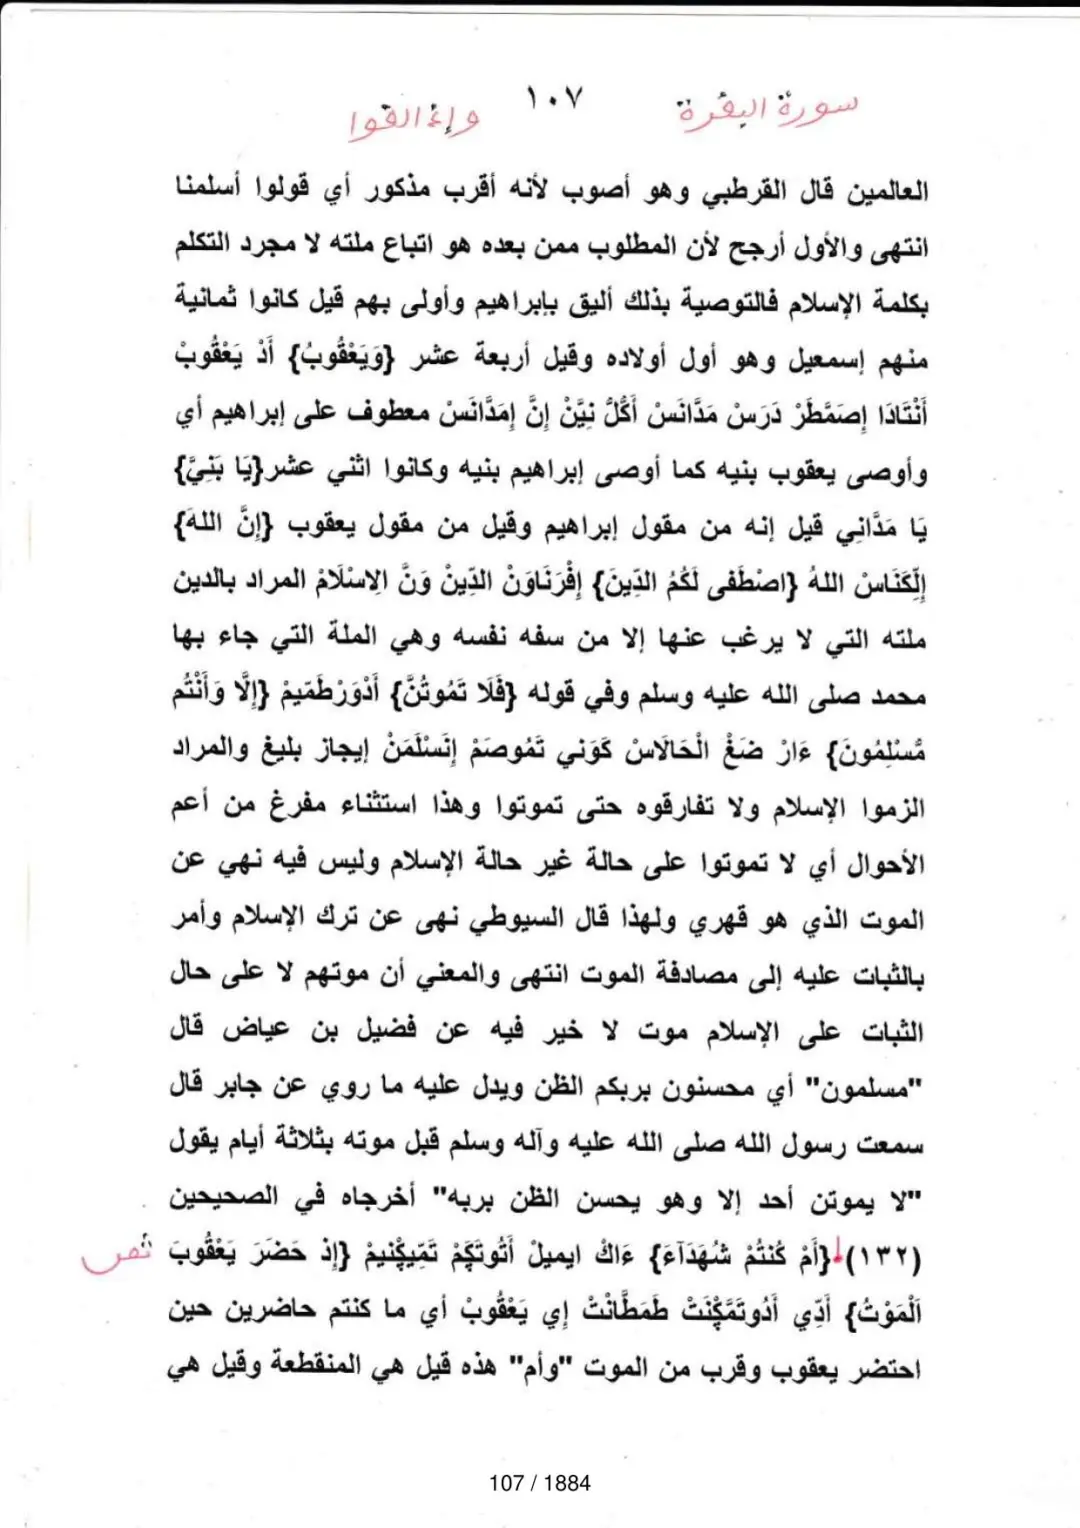 سورة البقرة ١٠٧ وإذا لقوا
العالمين قال القرطبي وهو أصوب لأنه أقرب مذكور أي قولوا أسلمنا
انتهى والأول أرجح لأن المطلوب ممن بعده هو اتباع ملته لا مجرد التكلم
بكلمة الإسلام فالتوصية بذلك أليق بإبراهيم وأولى بهم قيل كانوا ثمانية
منهم إسمعيل وهو أول أولاده وقيل أربعة عشر {وَيَعْقُوبُ} أَدْ يَعْقُوبْ
أَنْتَادَا إِصَمَّطَرْ دَرَسْ مَدَّانَسْ أَكُّلْ نِيَّنْ إِنَّ إِمَدَّانَسْ معطوف على إبراهيم أي
وأوصى يعقوب بنيه كما أوصى إبراهيم بنيه وكانوا اثني عشر{يَا بَنِيَّ}
يَا مَدَّانِي قيل إنه من مقول إبراهيم وقيل من مقول يعقوب {إِنَّ اللهَ}
إِلِّكَنَاسْ اللهُ {اصْطَفَى لَكُمُ الدِّينَ} إِفْرَنَاوَنْ الدِّينْ وَنَّ الِاسْلَامْ المراد بالدين
ملته التي لا يرغب عنها إلا من سفه نفسه وهي الملة التي جاء بها
محمد صلى الله عليه وسلم وفي قوله {فَلَا تَمُوتُنَّ} أَدْوَرْطَمّيمْ {إِلَّا وَأَنْتُم
مُّسْلِمُونَ} ءَارْ ضَغْ الْحَالَاسْ كَوَني تَمُوصَمْ إِنَسْلَمَنْ إيجاز بليغ والمراد
الزموا الإسلام ولا تفارقوه حتى تموتوا وهذا استثناء مفرغ من أعم
الأحوال أي لا تموتوا على حالة غير حالة الإسلام وليس فيه نهي عن
الموت الذي هو قهري ولهذا قال السيوطي نهى عن ترك الإسلام وأمر
بالثبات عليه إلى مصادفة الموت انتهى والمعني أن موتهم لا على حال
الثبات على الإسلام موت لا خير فيه عن فضيل بن عياض قال
"مسلمون" أي محسنون بربكم الظن ويدل عليه ما روي عن جابر قال
سمعت رسول الله صلى الله عليه وآله وسلم قبل موته بثلاثة أيام يقول
"لا يموتن أحد إلا وهو يحسن الظن بربه" أخرجاه في الصحيحين
(١٣٢) {أَمْ كُنتُمْ شُهَدَآءَ} ءَاكْ ايميلْ أَتُوتَكَمْ تَمِّيكْنيمْ {إِذ حَضَرَ يَعْقُوبَ
اَلْمَوْتُ} أَدِّي أَدُوتَمَّكْنَتْ طَمطَّانْتْ إِي يَعْقُوبْ أي ما كنتم حاضرين حين
احتضر يعقوب وقرب من الموت "وأم" هذه قيل هي المنقطعة وقيل هي
107 / 1884